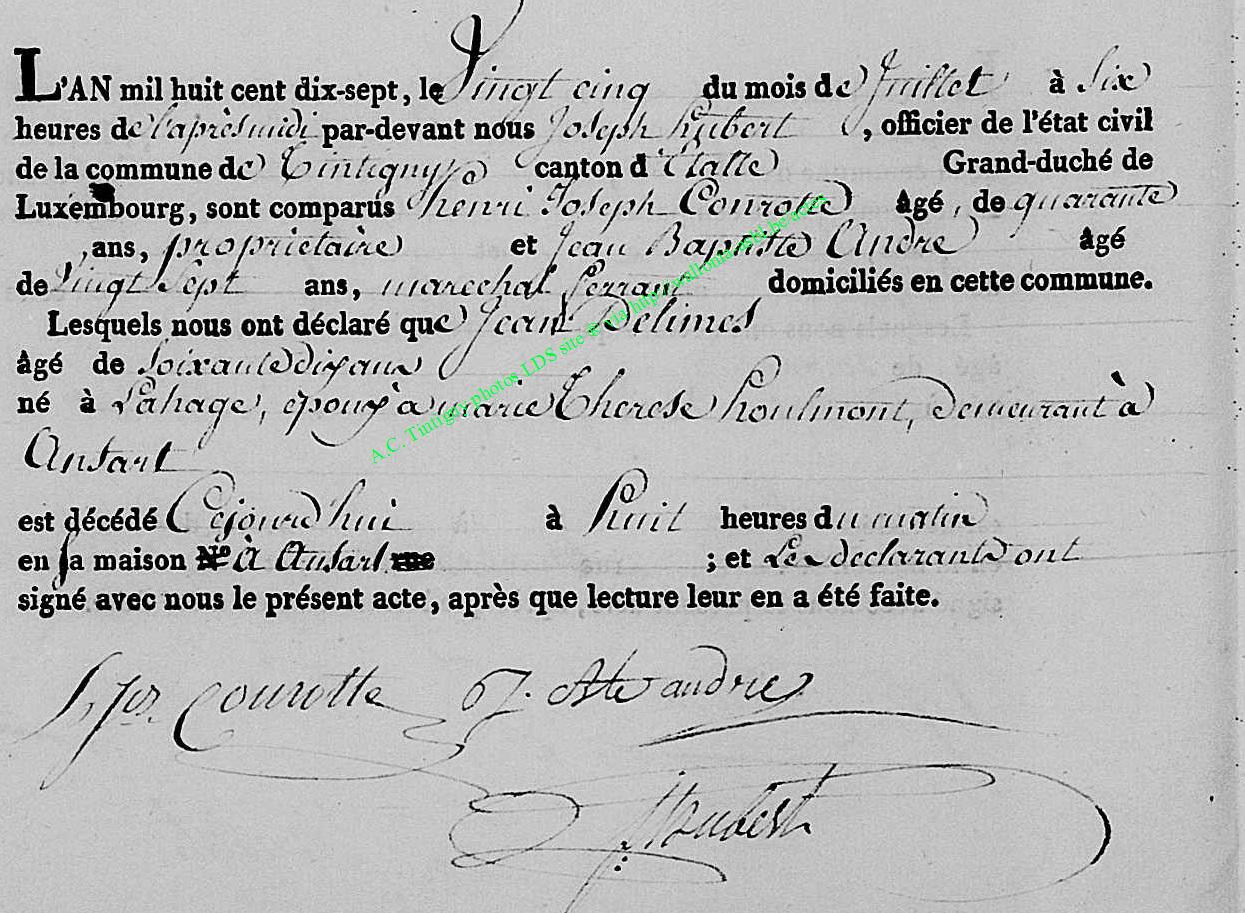 L'AN mil huit cent dix-sept, le Vingt cinq du mois de Juillet à Six
heures de l'aprèsmidi par-devant nous Joseph hubert, officier de l'état civil
de la commune de Tintigny canton d'Etalle Grand-duché de
Luxembourg, sont comparus henri Joseph Courotte âgé, de quarante
, ans, propriétaire et Jean Baptiste Andre âgé
de Vingt Sept ans, marechal ferrant domiciliés en cette commune.
Lesquels nous ont déclaré que Jean Delimes
âgé de Soixante dix ans
né à Lahage, epoux à marie Therese houlmont, demeurant à
Ansart
est décédé Cejourd'hui à huit heures du matin
en sa maison N° à Ansart rue ; et Les declarants ont
signé avec nous le présent acte, après que lecture leur en a été faite.
Courotte andre
J hubert
A.C. Tintigny photos LDS site